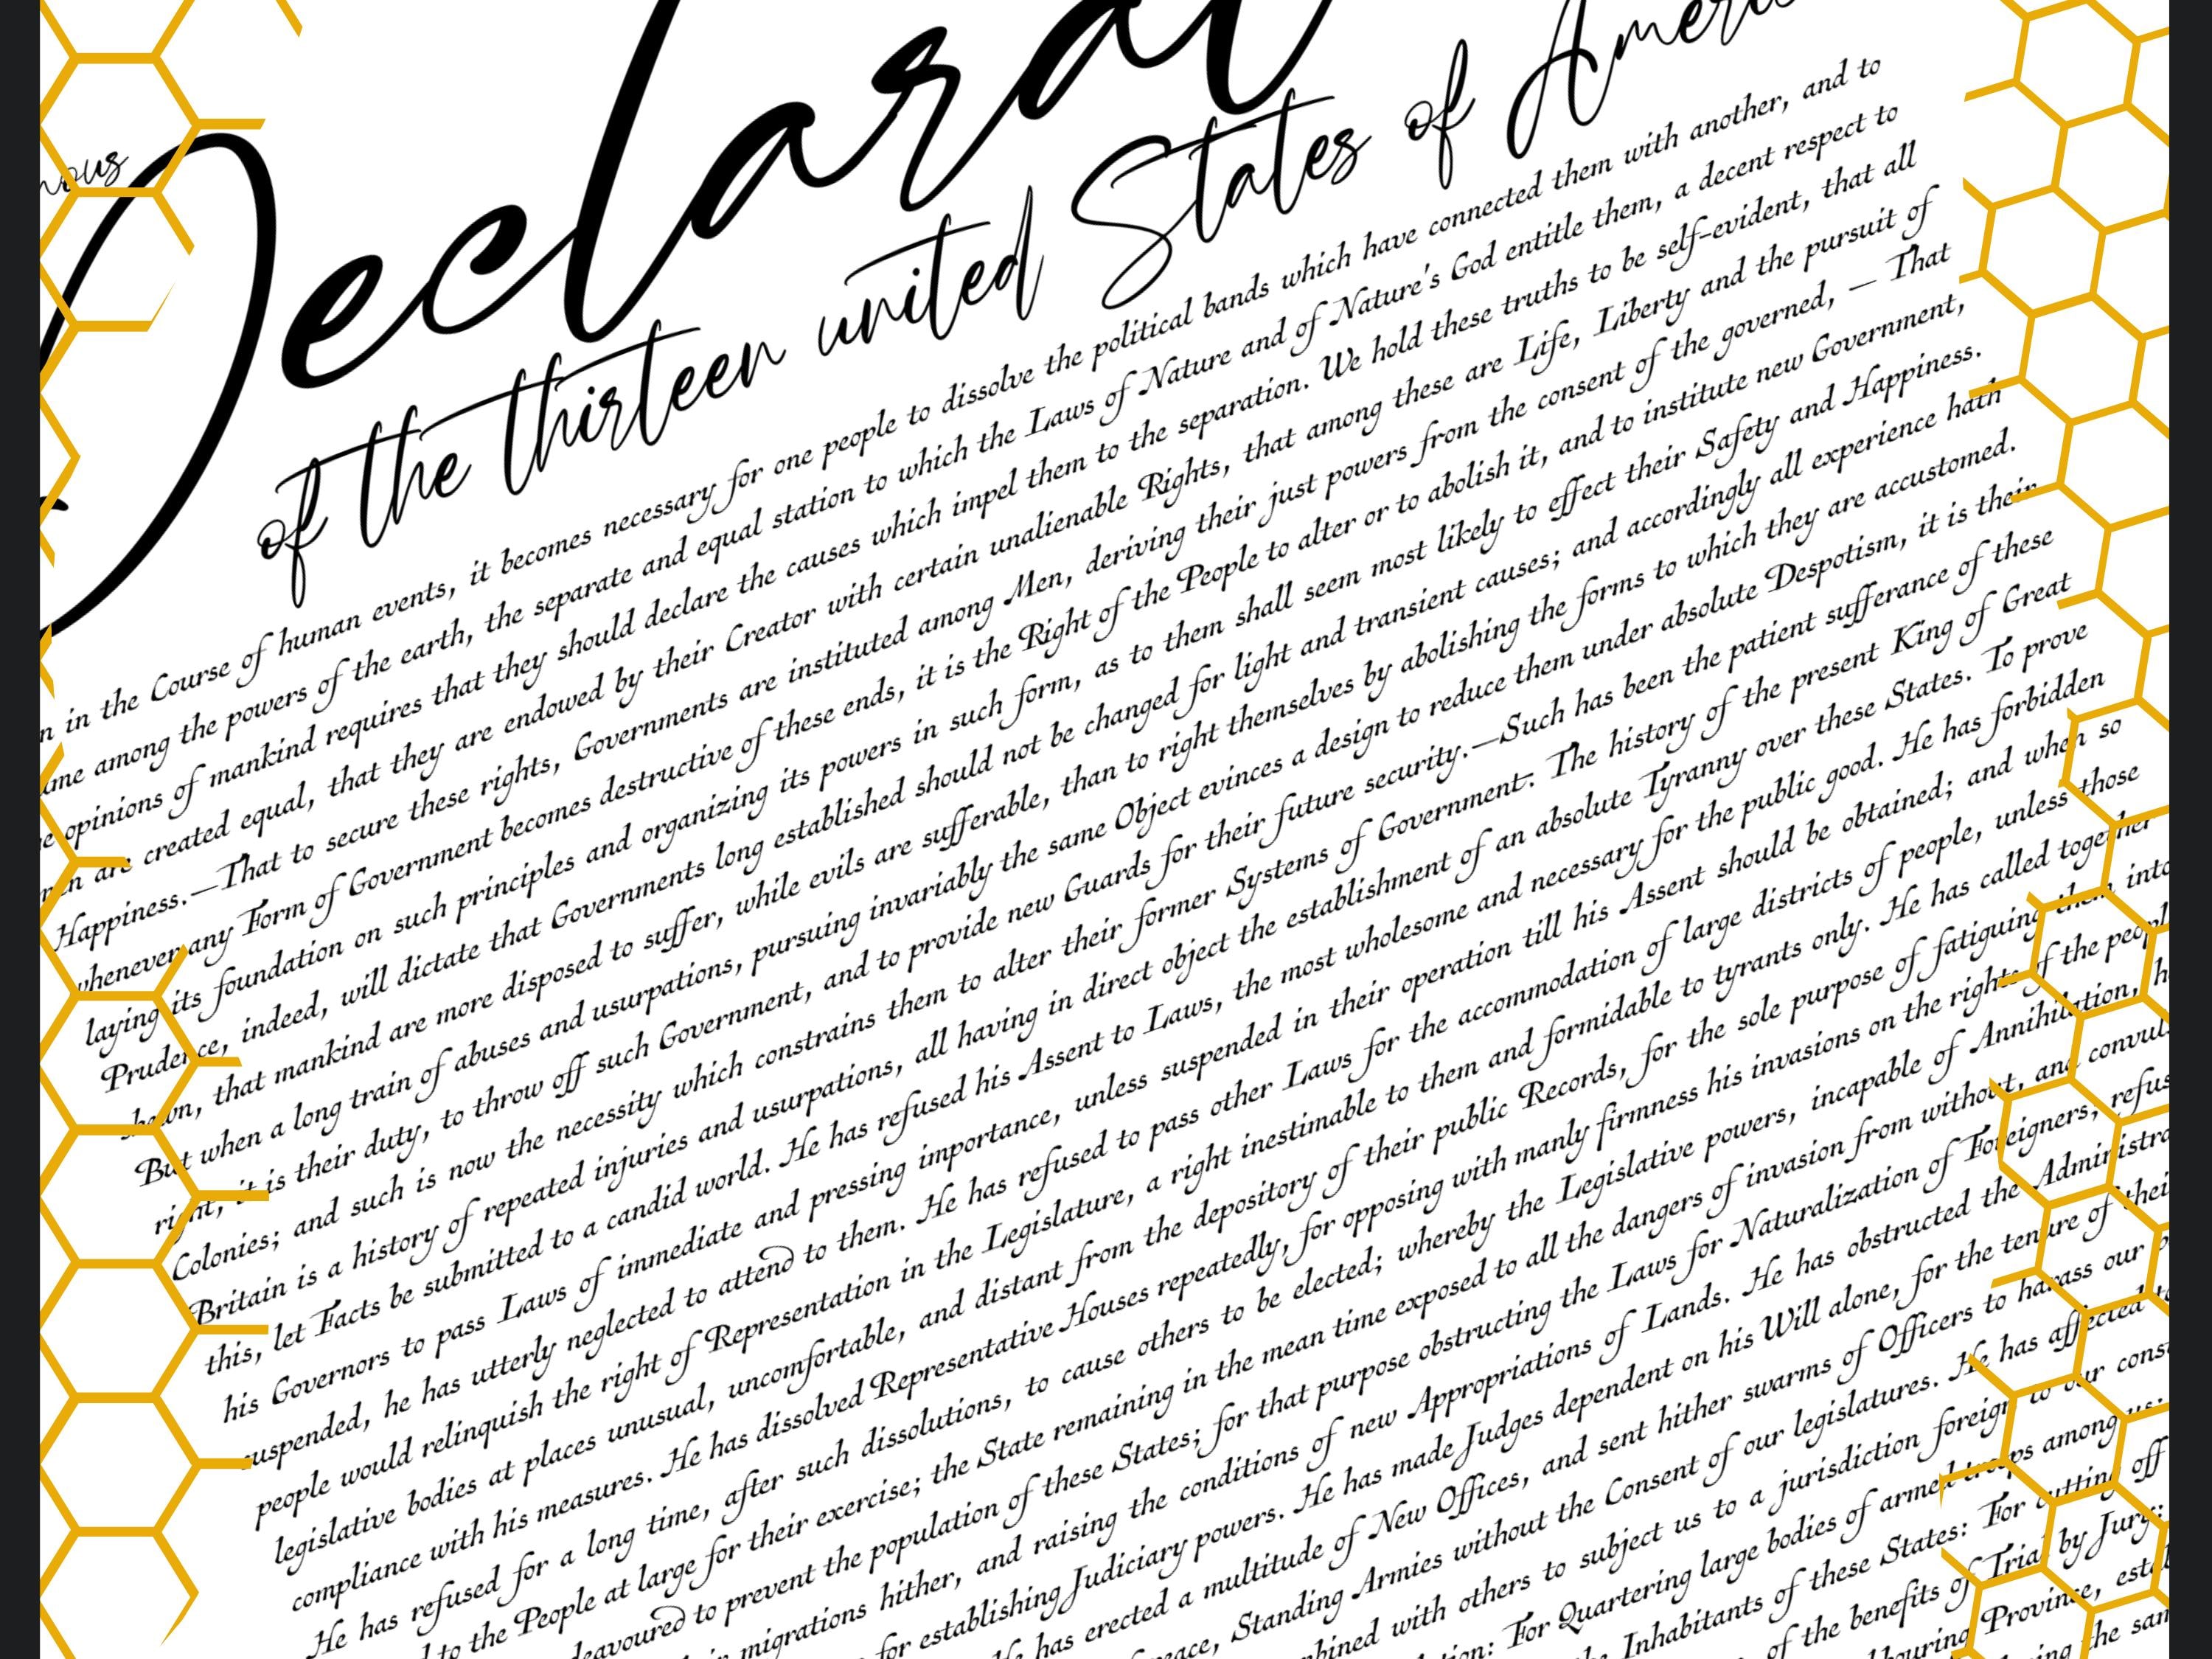 nous
Declarat
of the thirteen united States of Ameri
n in the Course of human events, it becomes necessary for one people to dissolve the political bands which have connected them with another, and to
ume among the powers of the earth, the separate and equal station to which the Laws of Nature and of Nature's God entitle them, a decent respect to
e opinions of mankind requires that they should declare the causes which impel them to the separation. We hold these truths to be self-evident, that all
men are created equal, that they are endowed by their Creator with certain unalienable Rights, that among these are Life, Liberty and the pursuit of
Happiness.—That to secure these rights, Governments are instituted among Men, deriving their just powers from the consent of the governed, — That
whenever any Form of Government becomes destructive of these ends, it is the Right of the People to alter or to abolish it, and to institute new Government,
laying its foundation on such principles and organizing its powers in such form, as to them shall seem most likely to effect their Safety and Happiness.
Prudence, indeed, will dictate that Governments long established should not be changed for light and transient causes; and accordingly all experience hath
shewn, that mankind are more disposed to suffer, while evils are sufferable, than to right themselves by abolishing the forms to which they are accustomed.
But when a long train of abuses and usurpations, pursuing invariably the same Object evinces a design to reduce them under absolute Despotism, it is their
right, it is their duty, to throw off such Government, and to provide new Guards for their future security.—Such has been the patient sufferance of these
Colonies; and such is now the necessity which constrains them to alter their former Systems of Government. The history of the present King of Great
Britain is a history of repeated injuries and usurpations, all having in direct object the establishment of an absolute Tyranny over these States. To prove
this, let Facts be submitted to a candid world. He has refused his Assent to Laws, the most wholesome and necessary for the public good. He has forbidden
his Governors to pass Laws of immediate and pressing importance, unless suspended in their operation till his Assent should be obtained; and when so
suspended, he has utterly neglected to attend to them. He has refused to pass other Laws for the accommodation of large districts of people, unless those
people would relinquish the right of Representation in the Legislature, a right inestimable to them and formidable to tyrants only. He has called together
legislative bodies at places unusual, uncomfortable, and distant from the depository of their public Records, for the sole purpose of fatiguing them into
compliance with his measures. He has dissolved Representative Houses repeatedly, for opposing with manly firmness his invasions on the rights of the peopl
He has refused for a long time, after such dissolutions, to cause others to be elected; whereby the Legislative powers, incapable of Annihilation, h
to the People at large for their exercise; the State remaining in the mean time exposed to all the dangers of invasion from without, and convul
deavoured to prevent the population of these States; for that purpose obstructing the Laws for Naturalization of Foreigners; refus
migrations hither, and raising the conditions of new Appropriations of Lands. He has obstructed the Administra
for establishing Judiciary powers. He has made Judges dependent on his Will alone, for the tenure of thei
He has erected a multitude of New Offices, and sent hither swarms of Officers to harass our
peace, Standing Armies without the Consent of our legislatures. He has affected to
bined with others to subject us to a jurisdiction foreign to our const
tion: For Quartering large bodies of armed troops among us:
the Inhabitants of these States: For cutting off
of the benefits of Trial by Jury:
bouring Province, estab
the sam